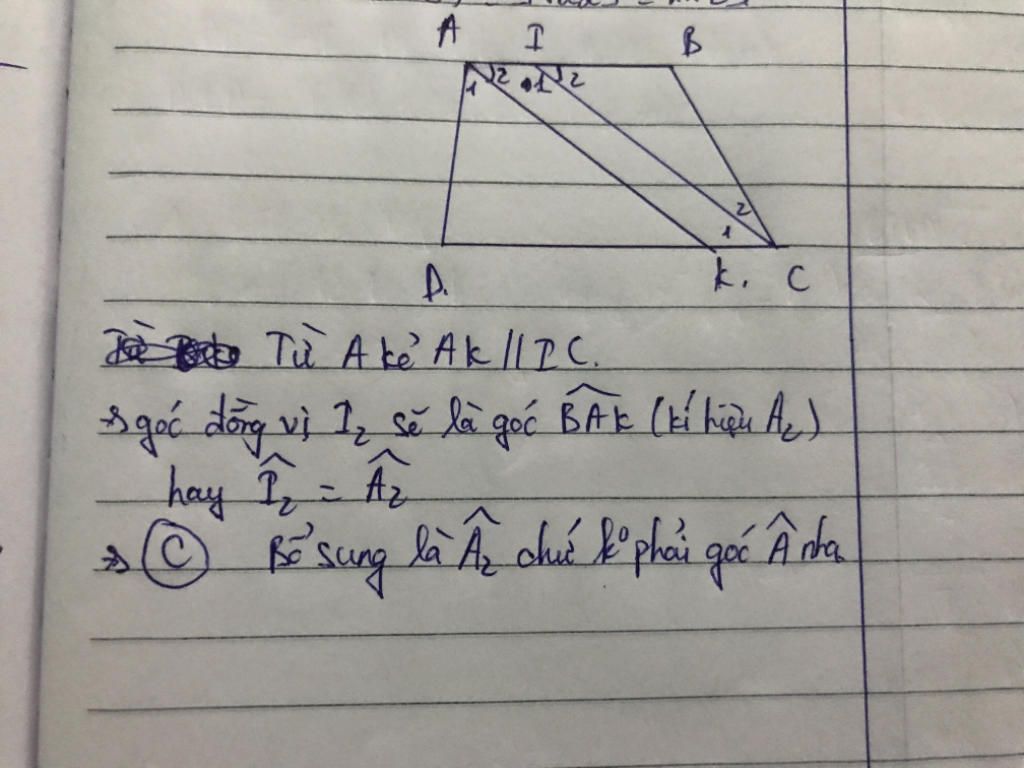 A I B
1 2 1 2
2
1
D. K. C
Từ A kẻ AK // IC.
→ góc đồng vị I₂ sẽ là góc BAK (kí hiệu A₂)
hay Î₂ = Â₂
→ C Bổ sung là Â₂ chứ k⁰ phải góc Â nha